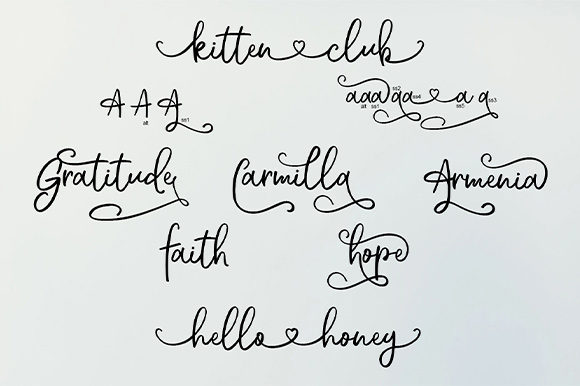 kitten club
A A A a a a a a a a
alt ss1 alt ss1 ss2 ss4 ss5 ss3
Gratitude Carmilla Armenia
faith hope
hello honey